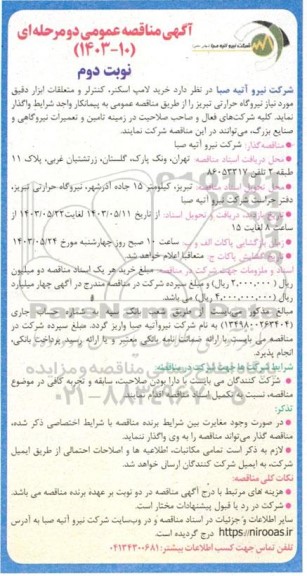 شرکت نیرو آتیه صبا
آگهی مناقصه عمومی دو مرحله ای
(۱۰-۱۴۰۳)
نوبت دوم
شرکت نیرو آتیه صبا در نظر دارد خرید لامپ اسکنر، کنترلر و متعلقات ابزار دقیق
مورد نیاز نیروگاه حرارتی تبریز را از طریق مناقصه عمومی به پیمانکار واجد شرایط واگذار
نماید. کلیه شرکت‌های فعال و صاحب صلاحیت در زمینه تامین و تعمیرات نیروگاهی و
صنایع بزرگ، می‌توانند در این مناقصه شرکت نمایند.
مناقصه‌گذار: شرکت نیرو آتیه صبا
محل دریافت اسناد مناقصه: تهران، ونک پارک، گلستان، زرتشتیان غربی، پلاک ۱۱
طبقه ۴ تلفن ۸۶۰۵۳۳۱۷
محل تحویل اسناد مناقصه: تبریز، کیلومتر ۱۵ جاده آذرشهر، نیروگاه حرارتی تبریز،
دفتر حراست شرکت نیرو آتیه صبا
دریافت و تحویل اسناد: از تاریخ ۱۴۰۳/۰۵/۱۱ لغایت ۱۴۰۳/۰۵/۲۲ از
ساعت ۸ لغایت ۱۵
زمان بازگشایی پاکات الف و ب: ساعت ۱۰ صبح روز چهارشنبه مورخ ۱۴۰۳/۰۵/۲۴
زمان گشایش پاکات ج: متعاقبا اعلام خواهد شد.
اسناد و ملزومات جهت شرکت در مناقصه: مبلغ خرید هر یک اسناد مناقصه دو میلیون
ریال (۲,۰۰۰,۰۰۰ ریال) و مبلغ سپرده شرکت در مناقصه مندرج در آگهی چهار میلیارد
ریال (۴,۰۰۰,۰۰۰,۰۰۰ ریال) می باشد.
مبالغ مذکور می‌بایست از طریق شعب بانک سپه به شماره حساب جاری
(۱۳۴۹۸۰۰۲۶۳۴۰۴) به نام شرکت نیرو آتیه صبا واریز گردد. مبلغ سپرده شرکت در
مناقصه می بایست با ارائه ضمانت نامه بانکی معتبر و یا ارایه رسید پرداخت بانکی،
انجام پذیرد.
شرایط شرکت‌ها جهت شرکت در مناقصه:
شرکت کنندگان می بایست با دارا بودن صلاحیت، سابقه و تجربه کافی در موضوع
مناقصه، نسبت به تکمیل اسناد مناقصه اقدام نمایند.
تذکر:
در صورت وجود مغایرت بین شرایط برنده مناقصه با شرایط اختصاصی ذکر شده،
مناقصه گذار می‌تواند مناقصه را به وی واگذار ننماید.
لازم به ذکر است تمامی مکاتبات، اطلاعیه ها و اصلاحات احتمالی از طریق ایمیل
شرکت، به ایمیل شرکت کنندگان ارسال خواهد شد.
نکات کلی مناقصه:
هزینه های مرتبط با درج آگهی مناقصه در دو نوبت بر عهده برنده مناقصه می باشد.
شرکت در رد یا قبول پیشنهادات مختار است.
سایر اطلاعات و جزئیات در اسناد مناقصه و در وب‌سایت شرکت نیرو آتیه صبا به آدرس
https://nirooas.ir درج گردیده است.
تلفن تماس جهت کسب اطلاعات بیشتر: ۰۴۱۳۴۳۰۰۶۸۱